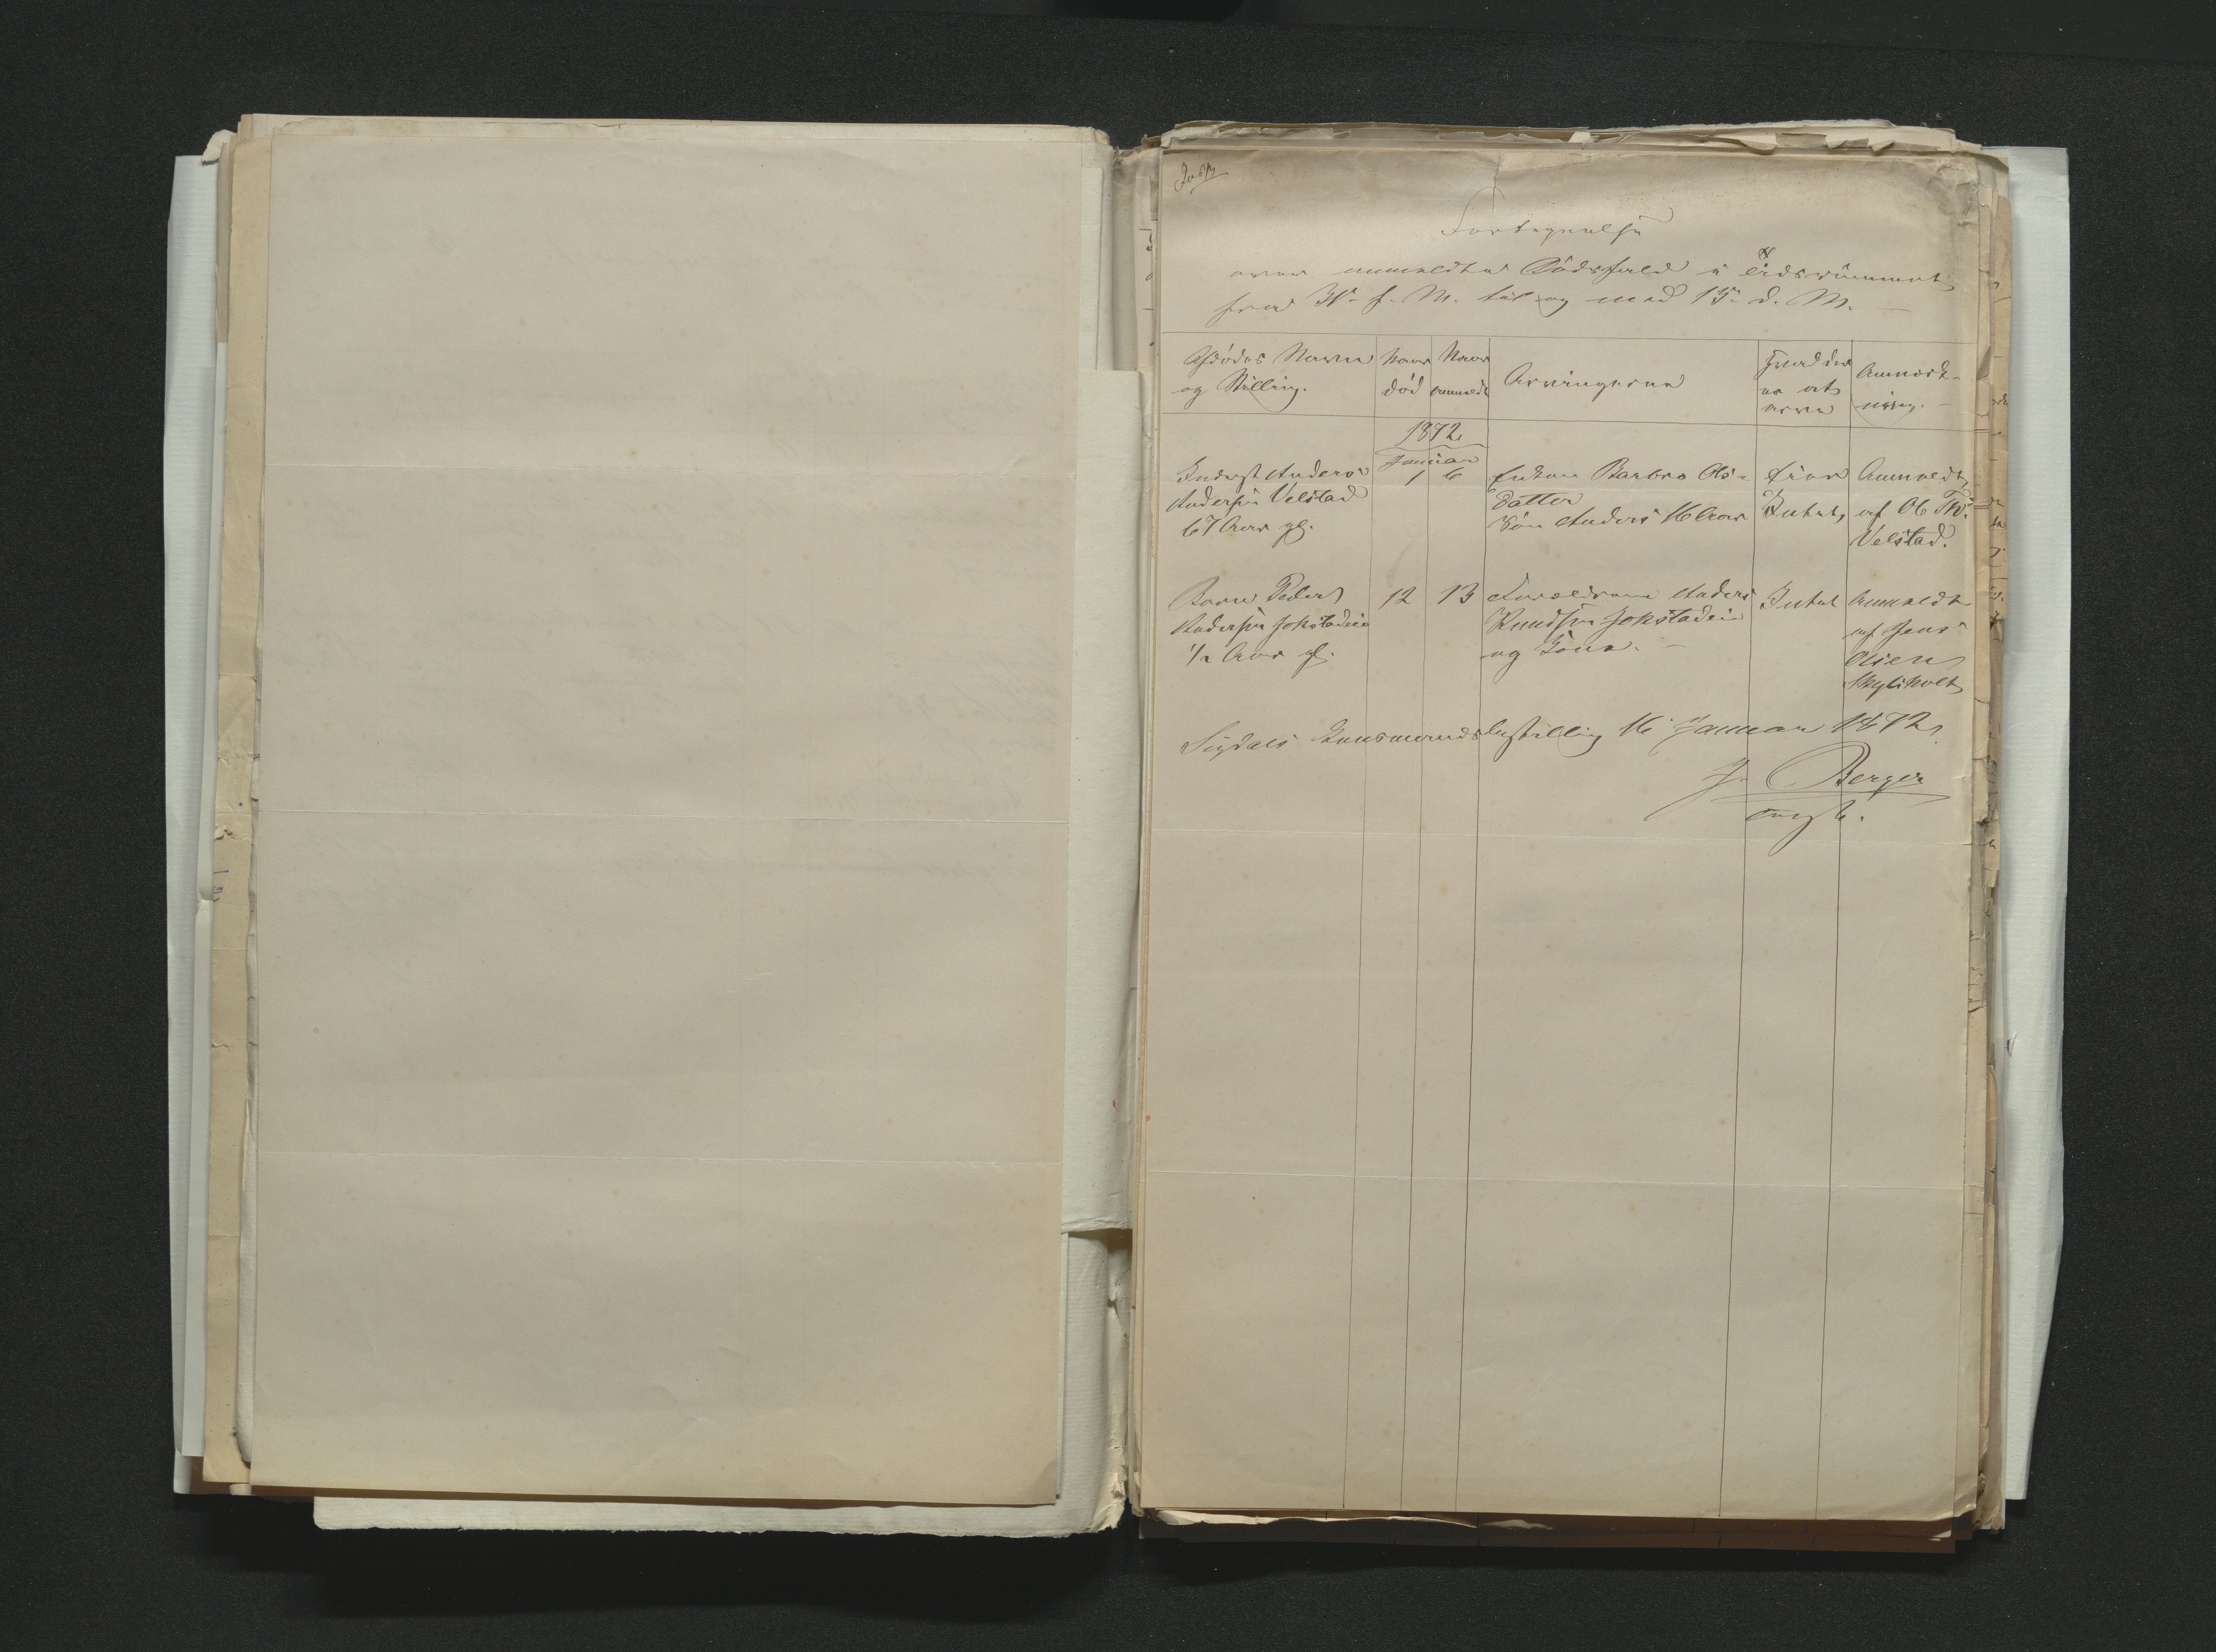 Fortegnelse
over anmeldte Dødsfald i
fra 31te f. M. til og med 15de d. M. —
Afdødes Navn
og Stilling.
Naar
død
Naar
anmeldt
Arvingerne
Hvad der
er at
arve
Anmærk-
ning. —
1872
Januar
Inderst Anders
Andersen Velstad
67 Aar gl.
1
6
Enken Barbro Ols-
datter
Søn Anders 16 Aar
Intet,
Anmeldt
af Ole
Velstad.
Barn Peder
Andersen Jokstadeie
1/2 Aar gl.
12
13
Forældrene Anders
Knudsen Jokstadeie
og Kone. —
Intet
Anmeldt
af Jens
Olsen
Sigdals Lensmandsbestilling 16 Januar 1872
J. Berger